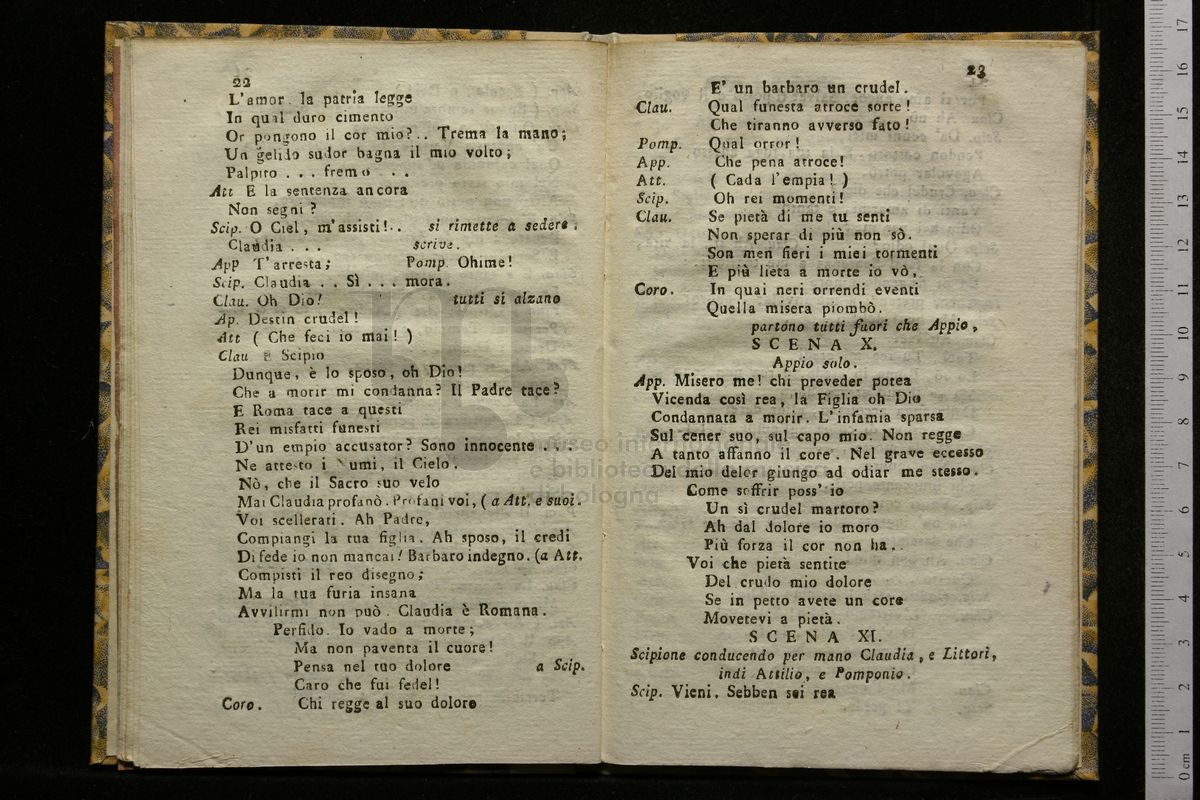 22
L'amor. la patria legge
In qual duro cimento
Or pongono il cor mio?.. Trema la mano;
Un gelido sudor bagna il mio volto;
Palpito . . . fremo . . .
Att E la sentenza ancora
Non segni ?
Scip. O Ciel, m'assisti!.. si rimette a sedere.
Claudia . . . scrive.
App T'arresta; Pomp. Ohime!
Scip. Claudia . . Sì . . . mora.
Clau. Oh Dio! tutti si alzano
Ap. Destin crudel!
Att ( Che feci io mai! )
Clau Scipio
Dunque, è lo sposo, oh Dio!
Che a morir mi condanna? Il Padre tace?
E Roma tace a questi
Rei misfatti funesti
D'un empio accusator? Sono innocente . . .
Ne attesto i umi, il Cielo.
Nò, che il Sacro suo velo
Mai Claudia profanò. Profani voi, ( a Att. e suoi.
Voi scellerati. Ah Padre,
Compiangi la tua figlia. Ah sposo, il credi
Di fede io non mancai! Barbaro indegno. (a Att.
Compisti il reo disegno;
Ma la tua furia insana
Avvilirmi non può. Claudia è Romana.
Perfido. Io vado a morte;
Ma non paventa il cuore!
Pensa nel tuo dolore a Scip.
Caro che fui fedel!
Coro. Chi regge al suo dolore
23
E' un barbaro un crudel.
Clau. Qual funesta atroce sorte!
Che tiranno avverso fato!
Pomp. Qual orror!
App. Che pena atroce!
Att. ( Cada l'empia! )
Scip. Oh rei momenti!
Clau. Se pietà di me tu senti
Non sperar di più non sò.
Son men fieri i miei tormenti
E più lieta a morte io vò,
Coro. In quai neri orrendi eventi
Quella misera piombò.
partono tutti fuori che Appio,
SCENA X.
Appio solo.
App. Misero me! chi preveder potea
Vicenda così rea, la Figlia oh Dio
Condannata a morir. L'infamia sparsa
Sul cener suo, sul capo mio. Non regge
A tanto affanno il core. Nel grave eccesso
Del mio dolor giungo ad odiar me stesso.
Come soffrir poss'io
Un sì crudel martoro?
Ah dal dolore io moro
Più forza il cor non ha..
Voi che pietà sentite
Del crudo mio dolore
Se in petto avete un core
Movetevi a pietà.
SCENA XI.
Scipione conducendo per mano Claudia, e Littori,
indi Attilio, e Pomponio.
Scip. Vieni. Sebben sei rea